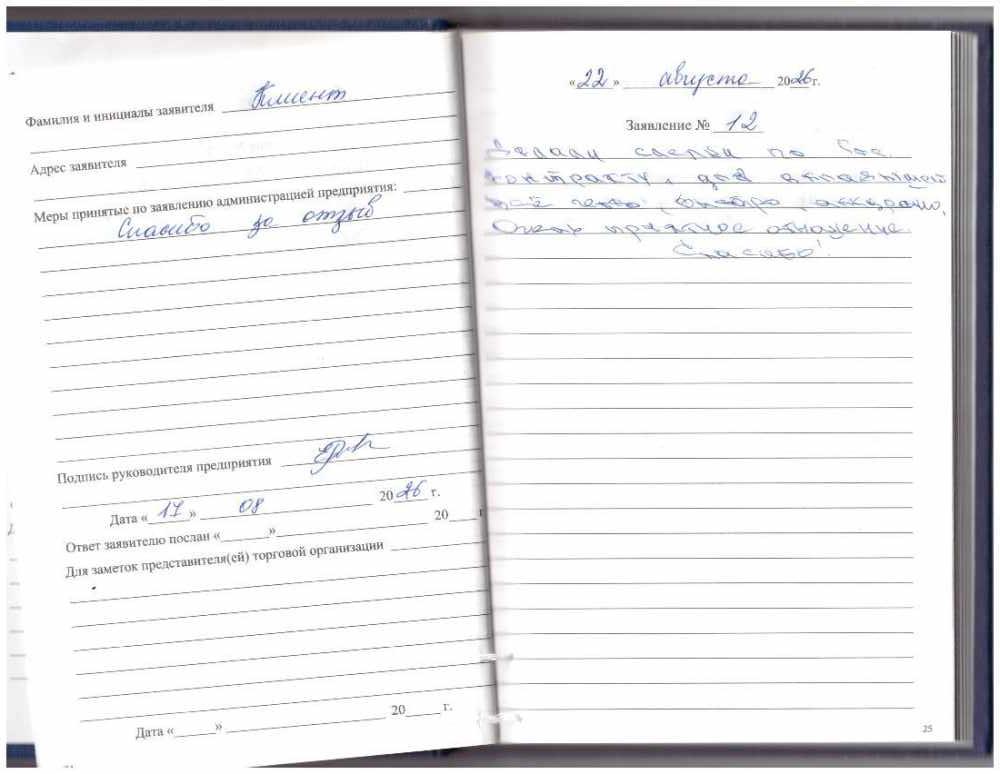 Фамилия и инициалы заявителя Клиент
Адрес заявителя
Меры принятые по заявлению администрацией предприятия:
Спасибо за отзыв
Подпись руководителя предприятия
Дата «17» 08 2026 г.
Ответ заявителю послан «______»____________ 20____
Для заметок представителя(ей) торговой организации
Дата «______» ____________ 20_____ г.
«22» августа 2026 г.
Заявление № 12
Делали сверки по Гос.
контракту, для
всё четко, быстро, аккуратно,
Очень приятное отношение.
Спасибо!
25